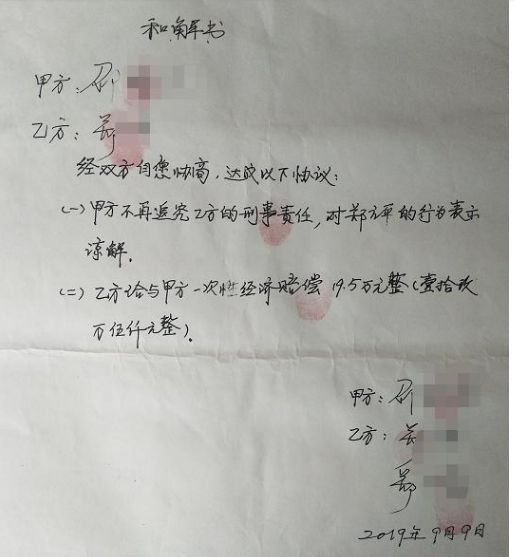 和解书
甲方：邵
乙方：郑
经双方自愿协商，达成以下协议：
(一) 甲方不再追究乙方的刑事责任，对郑平的行为表示
谅解。
(二) 乙方给与甲方一次性经济赔偿 19.5万元整（壹拾玖
万伍仟元整）。
甲方：邵
乙方：
郑
2019年9月9日